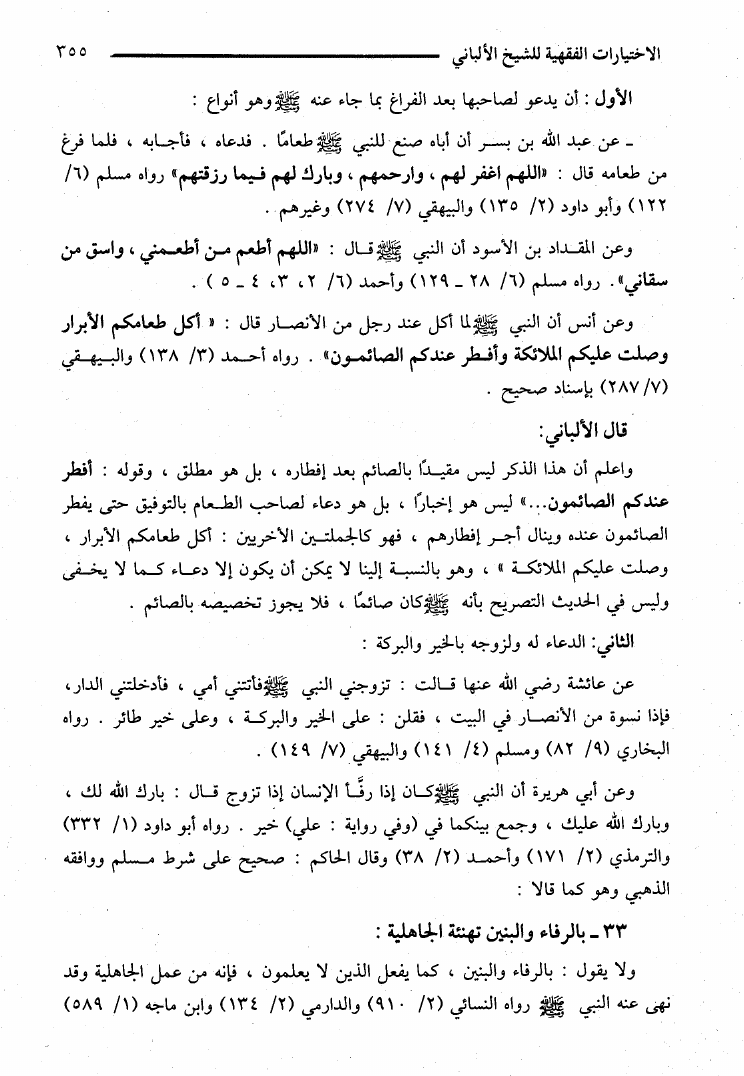 الاختيارات الفقهية للشيخ الألباني ٣٥٥
الأول : أن يدعو لصاحبها بعد الفراغ بما جاء عنه ﷺ وهو أنواع :
ـ عن عبد الله بن بسر أن أباه صنع للنبي ﷺ طعامًا . فدعاه ، فأجابه ، فلما فرغ
من طعامه قال : «اللهم اغفر لهم ، وارحمهم ، وبارك لهم فيما رزقتهم» رواه مسلم (٦/
١٢٢) وأبو داود (٢/ ١٣٥) والبيهقي (٧/ ٢٧٤) وغيرهم .
وعن المقداد بن الأسود أن النبي ﷺ قال : «اللهم أطعم من أطعمني ، واسق من
سقاني». رواه مسلم (٦/ ٢٨ ـ ١٢٩) وأحمد (٦/ ٢، ٣، ٤ ـ ٥ ) .
وعن أنس أن النبي ﷺ لما أكل عند رجل من الأنصار قال : « أكل طعامكم الأبرار
وصلت عليكم الملائكة وأفطر عندكم الصائمون» . رواه أحمد (٣/ ١٣٨) والبيهقي
(٧/ ٢٨٧) بإسناد صحيح .
قال الألباني:
واعلم أن هذا الذكر ليس مقيدًا بالصائم بعد إفطاره ، بل هو مطلق ، وقوله : أفطر
عندكم الصائمون...» ليس هو إخبارًا ، بل هو دعاء لصاحب الطعام بالتوفيق حتى يفطر
الصائمون عنده وينال أجر إفطارهم ، فهو كالجملتين الأخريين : أكل طعامكم الأبرار ،
وصلت عليكم الملائكة » ، وهو بالنسبة إلينا لا يمكن أن يكون إلا دعاء كما لا يخفى
وليس في الحديث التصريح بأنه ﷺ كان صائمًا ، فلا يجوز تخصيصه بالصائم .
الثاني: الدعاء له ولزوجه بالخير والبركة :
عن عائشة رضي الله عنها قالت : تزوجني النبي ﷺ فأتتني أمي ، فأدخلتني الدار،
فإذا نسوة من الأنصار في البيت ، فقلن : على الخير والبركة ، وعلى خير طائر . رواه
البخاري (٩/ ٨٢) ومسلم (٤/ ١٤١) والبيهقي (٧/ ١٤٩) .
وعن أبي هريرة أن النبي ﷺ كان إذا رفَّأ الإنسان إذا تزوج قال : بارك الله لك ،
وبارك الله عليك ، وجمع بينكما في (وفي رواية : علي) خير . رواه أبو داود (١/ ٣٣٢)
والترمذي (٢/ ١٧١) وأحمد (٢/ ٣٨) وقال الحاكم : صحيح على شرط مسلم ووافقه
الذهبي وهو كما قالا :
٣٣ ـ بالرفاء والبنين تهنئة الجاهلية :
ولا يقول : بالرفاء والبنين ، كما يفعل الذين لا يعلمون ، فإنه من عمل الجاهلية وقد
نهى عنه النبي ﷺ رواه النسائي (٢/ ٩١٠) والدارمي (٢/ ١٣٤) وابن ماجه (١/ ٥٨٩)